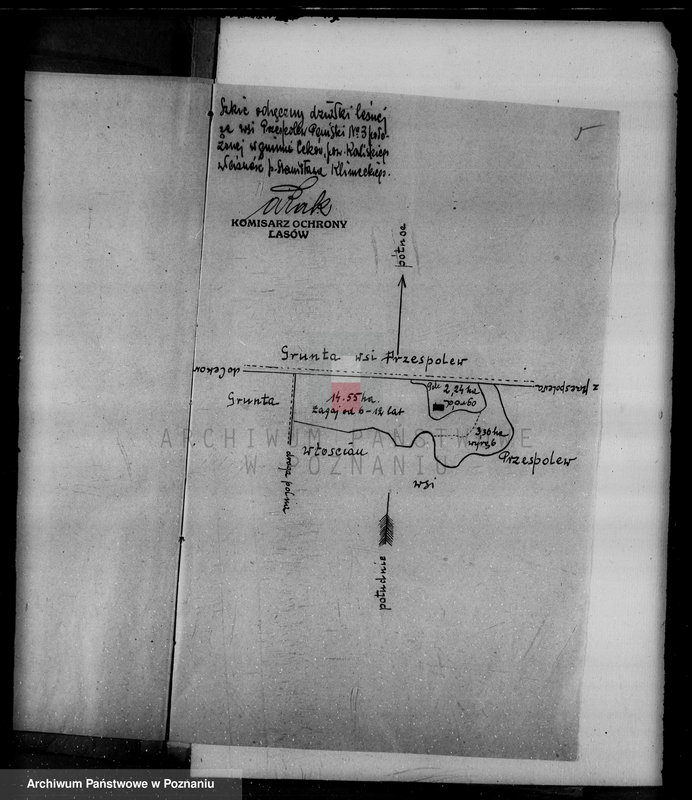 Szkic odręczny działki leśnej
ze wsi Przespolew Pański № 3 poło-
żonej w gminie Ceków, pow. Kaliskiego
własność p. Stanisława Klimeckiego.
5
KOMISARZ OCHRONY
LASÓW
północ
Grunta wsi Przespolew
do Cekowa
z Przespolewa
Grunta
14.55 ha
Zagaj od 6-12 lat
2,24 ha
ogród
3,30 ha
ARCHIWUM PAŃSTWOWE
W POZNANIU
włościan
Przespolew
wsi
droga polna
południe
Archiwum Państwowe w Poznaniu